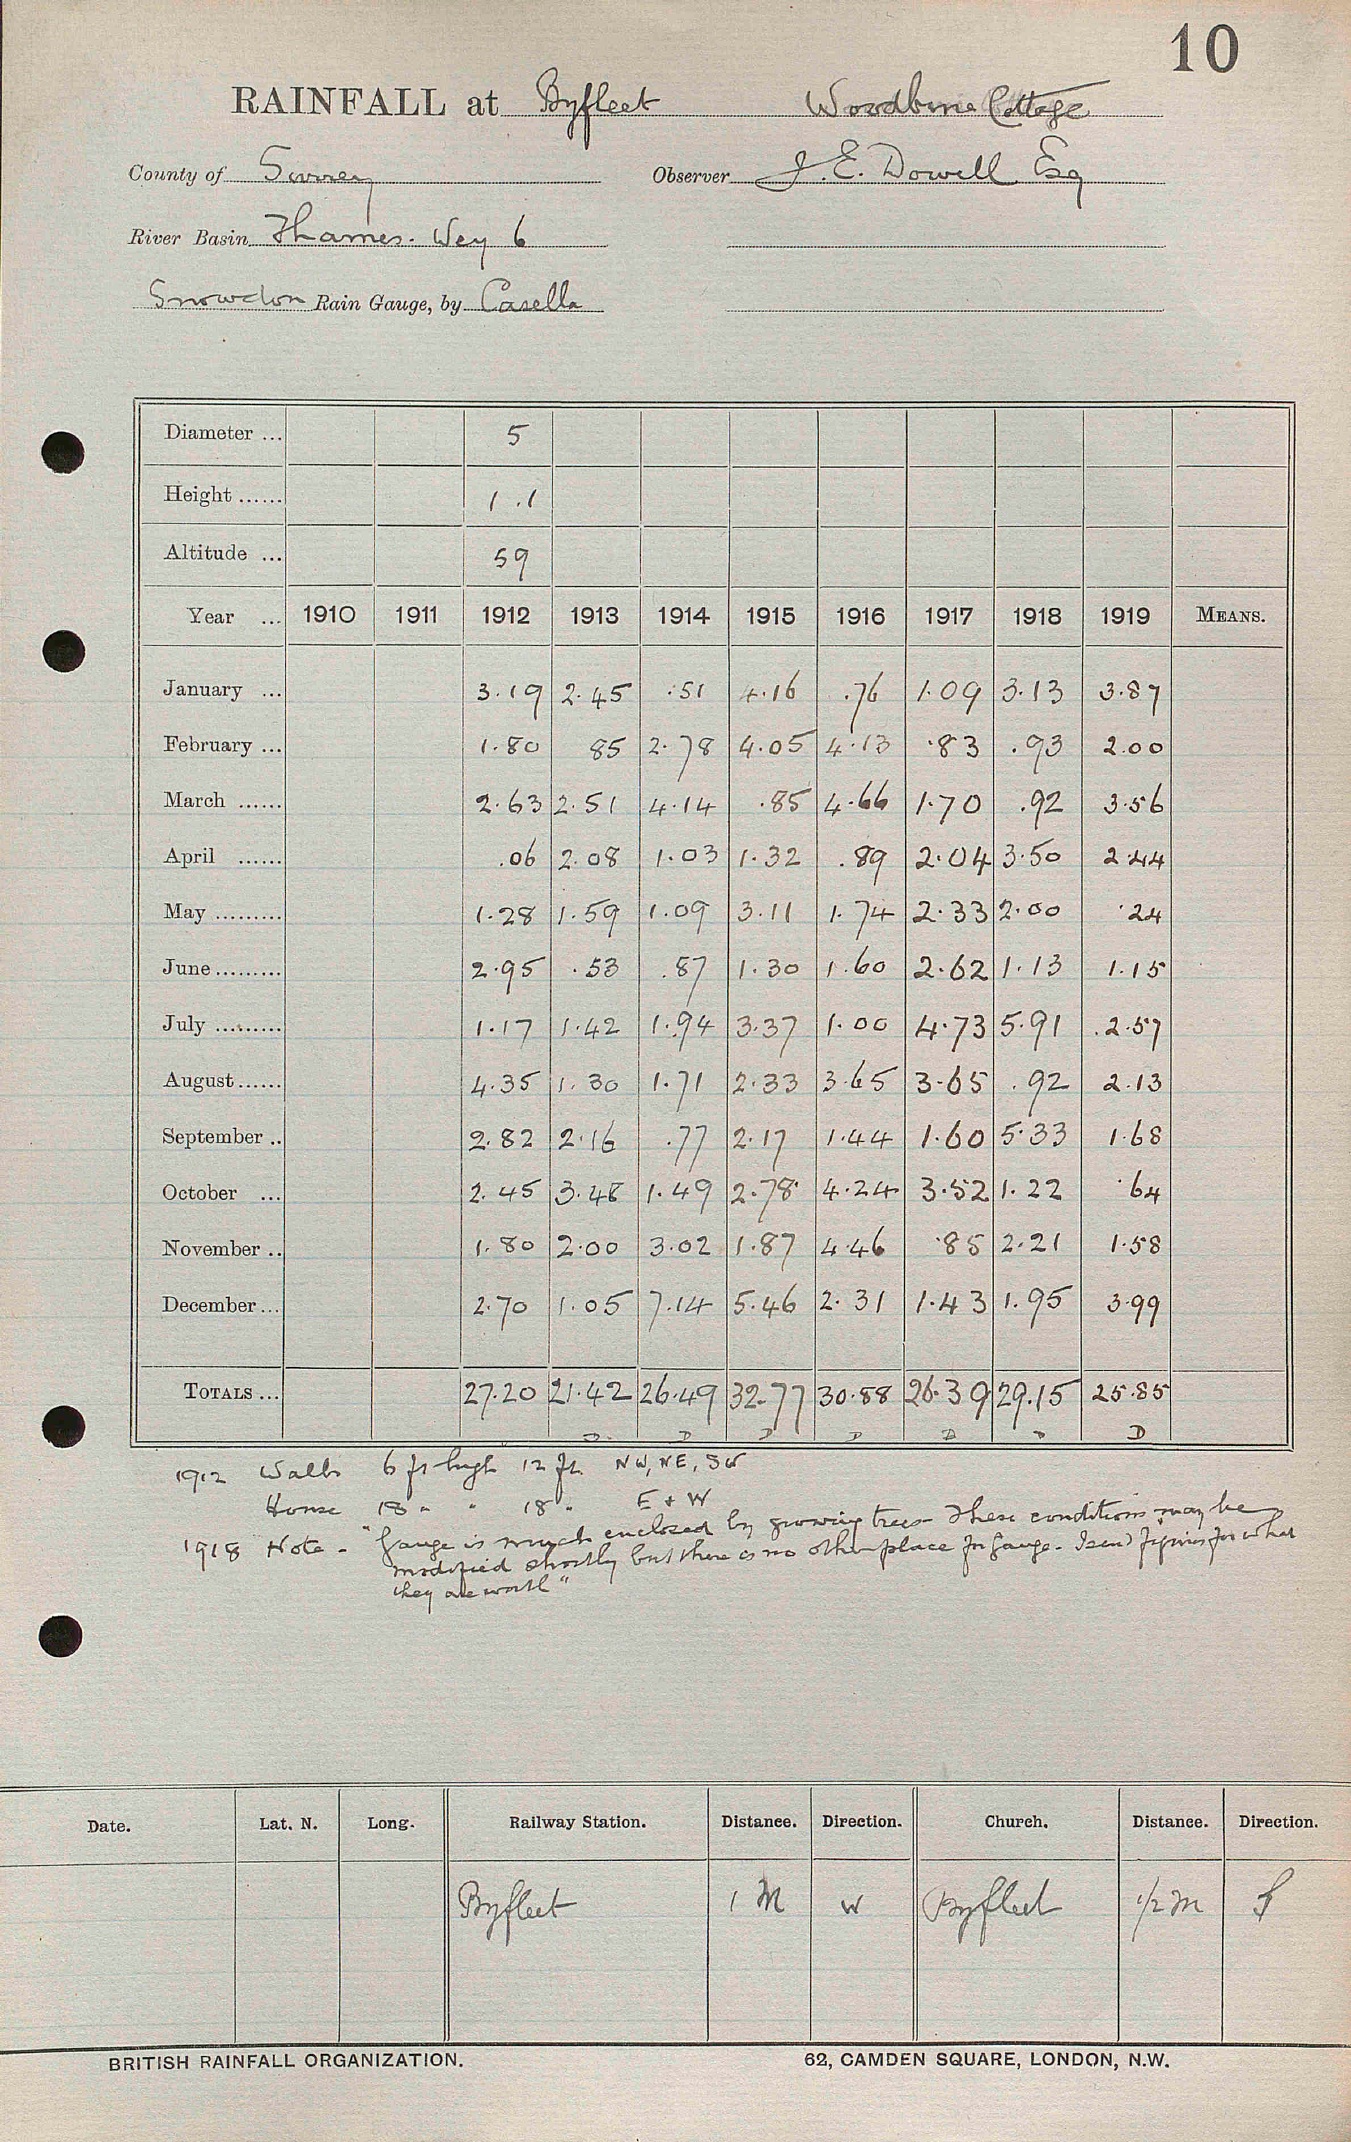 10
RAINFALL at Byfleet Woodbine Cottage
County of Surrey Observer J. E. Dowell Esq
River Basin Thames. Wey 6
Snowdon Rain Gauge, by Casella
Diameter ... 5
Height ...... 1.1
Altitude ... 59
Year ... 1910 1911 1912 1913 1914 1915 1916 1917 1918 1919 MEANS.
January ... 3.19 2.45 .51 4.16 .76 1.09 3.13 3.87
February ... 1.80 85 2.78 4.05 4.13 .83 .93 2.00
March ...... 2.63 2.51 4.14 .85 4.66 1.70 .92 3.56
April ...... .06 2.08 1.03 1.32 .89 2.04 3.50 2.44
May ......... 1.28 1.59 1.09 3.11 1.74 2.33 2.00 .24
June ......... 2.95 .53 .87 1.30 1.60 2.62 1.13 1.15
July ......... 1.17 1.42 1.94 3.37 1.00 4.73 5.91 2.57
August ...... 4.35 1.30 1.71 2.33 3.65 3.65 .92 2.13
September .. 2.82 2.16 .77 2.17 1.44 1.60 5.33 1.68
October ... 2.45 3.48 1.49 2.78 4.24 3.52 1.22 .64
November .. 1.80 2.00 3.02 1.87 4.46 .85 2.21 1.58
December ... 2.70 1.05 7.14 5.46 2.31 1.43 1.95 3.99
TOTALS ... 27.20 21.42 26.49 32.77 30.88 26.39 29.15 25.85
D D D D D D D
1912 Walls 6 ft high 12 ft. NW, NE, SW
House 18 " " 18 " E & W
1918 Note - "Gauge is much enclosed by growing trees These conditions may be
modified shortly but there is no other place for gauge. I send figures for what
they are worth"
Date. Lat. N. Long. Railway Station. Distance. Direction. Church. Distance. Direction.
Byfleet 1 M W Byfleet 1/2 M S
BRITISH RAINFALL ORGANIZATION. 62, CAMDEN SQUARE, LONDON, N.W.